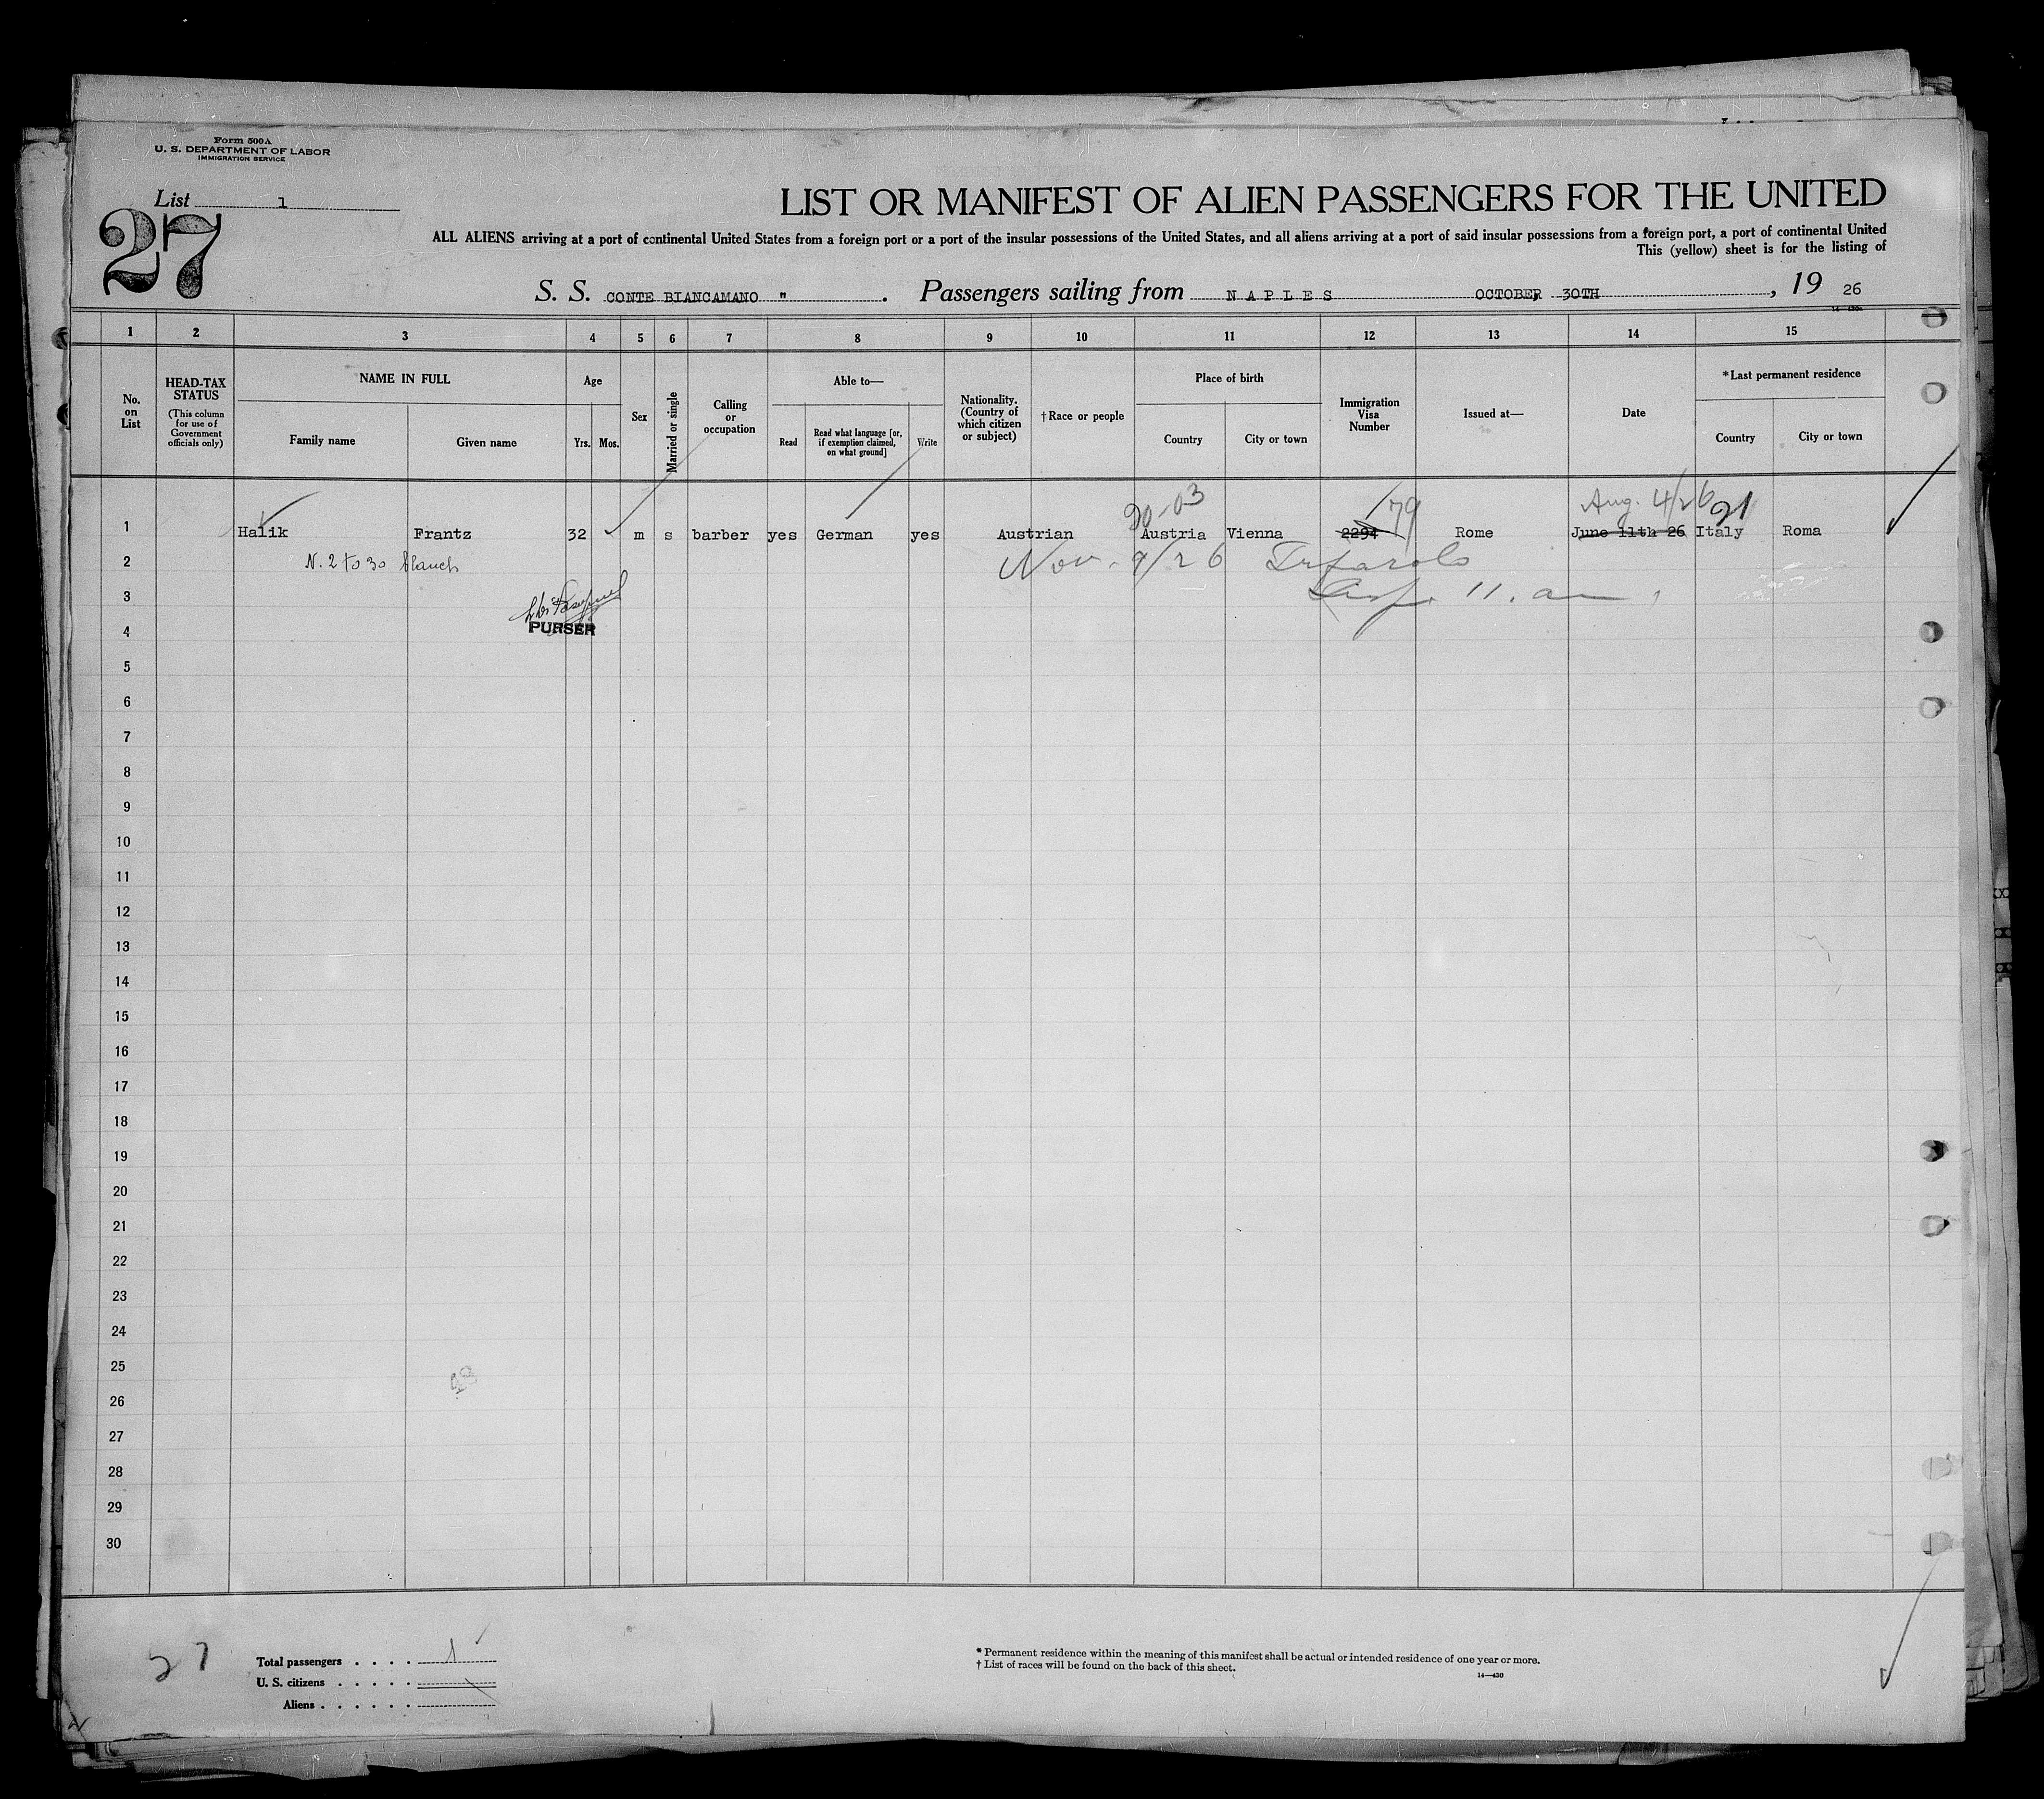 Form 500A
U. S. DEPARTMENT OF LABOR
IMMIGRATION SERVICE
List 1
27
LIST OR MANIFEST OF ALIEN PASSENGERS FOR THE UNITED
ALL ALIENS arriving at a port of continental United States from a foreign port or a port of the insular possessions of the United States, and all aliens arriving at a port of said insular possessions from a foreign port, a port of continental United
This (yellow) sheet is for the listing of
S. S. CONTE BIANCAMANO " . Passengers sailing from NAPLES OCTOBER, 30TH , 19 26
1 2 3 4 5 6 7 8 9 10 11 12 13 14 15
No. on List
HEAD-TAX STATUS
(This column for use of Government officials only)
NAME IN FULL
Family name
Given name
Age
Yrs.
Mos.
Sex
Married or single
Calling or occupation
Able to—
Read
Read what language [or, if exemption claimed, on what ground]
Write
Nationality. (Country of which citizen or subject)
†Race or people
Place of birth
Country
City or town
Immigration Visa Number
Issued at—
Date
*Last permanent residence
Country
City or town
20-03 179 Aug. 4/26 21
1 Halik Frantz 32 m s barber yes German yes Austrian Austria Vienna 2294 Rome June 11th 26 Italy Roma
2 N. 2 to 30 blanch Nov. 9/26
3 11. am
PURSER
4
5
6
7
8
9
10
11
12
13
14
15
16
17
18
19
20
21
22
23
24
25
26
27
28
29
30
27
Total passengers . . . . 1
U. S. citizens . . . . .
Aliens . . . . . .
* Permanent residence within the meaning of this manifest shall be actual or intended residence of one year or more.
† List of races will be found on the back of this sheet.
14—430